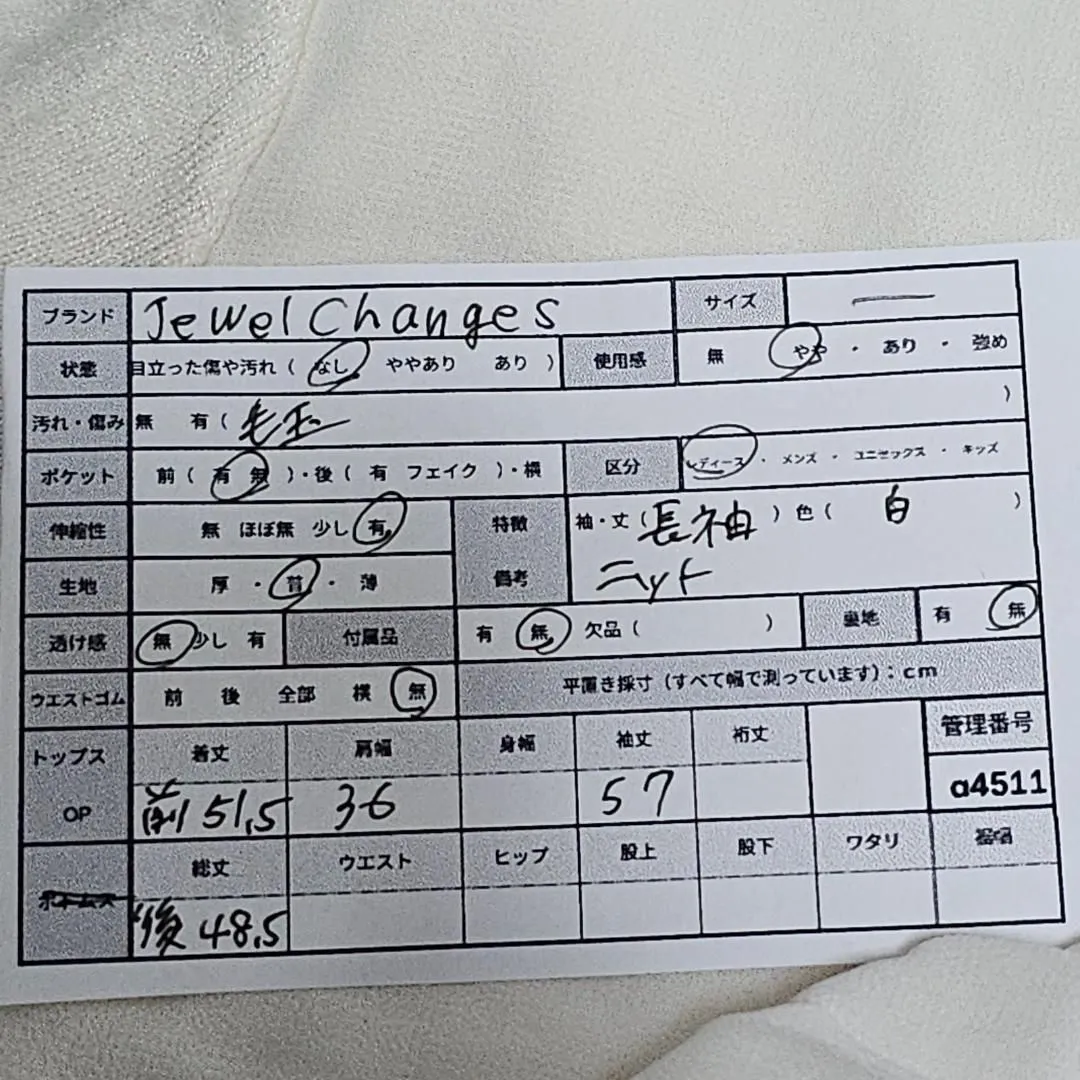 ブランド Jewel Changes サイズ —
状態 目立った傷や汚れ ( なし ややあり あり ) 使用感 無 やや ・ あり ・ 強め
汚れ・傷み 無 有 ( 毛玉 )
ポケット 前 ( 有 無 )・後 ( 有 フェイク )・横 区分 レディース ・ メンズ ・ ユニセックス ・ キッズ
伸縮性 無 ほぼ無 少し 有 特徴 袖・丈 ( 長袖 ) 色 ( 白 )
生地 厚 ・ 普 ・ 薄 備考 ニット
透け感 無 少し 有 付属品 有 無 欠品 ( ) 裏地 有 無
ウエストゴム 前 後 全部 横 無 平置き採寸 (すべて幅で測っています) : cm
トップス 着丈 肩幅 身幅 袖丈 裄丈 管理番号
OP 前 51.5 36 57 a4511
総丈 ウエスト ヒップ 股上 股下 ワタリ
ボトムス 後 48.5